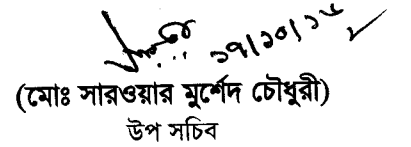 ১৭/১০/১৬
(মোঃ সারওয়ার মুর্শেদ চৌধুরী)
উপ সচিব